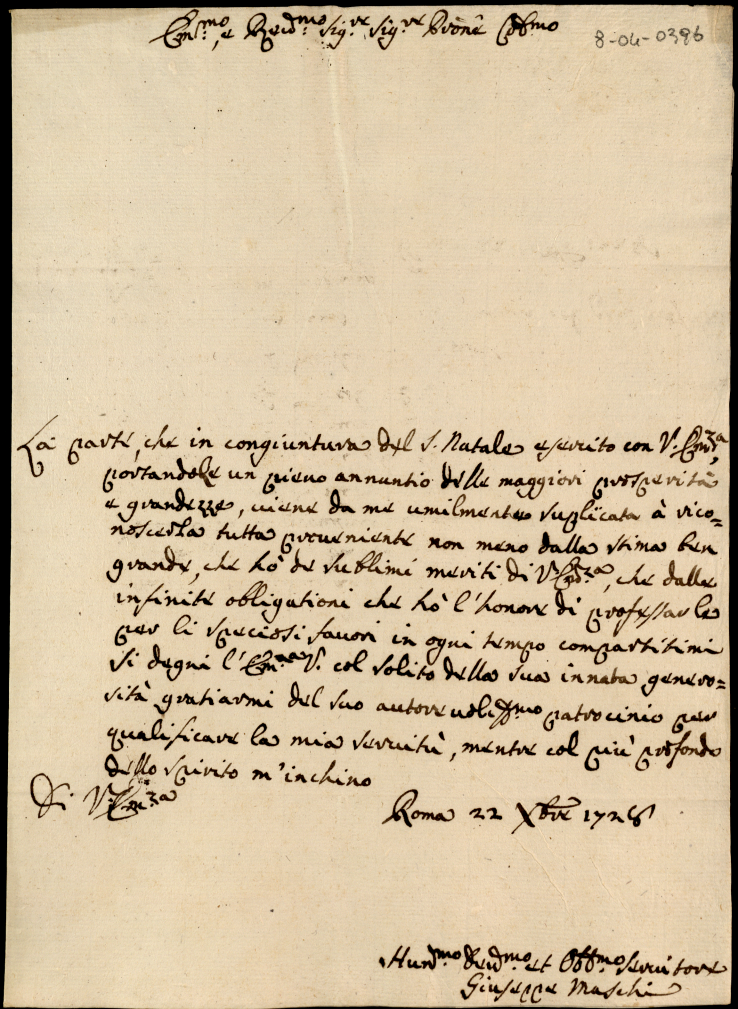 Em.mo, e Reud.mo Sig.re Sig.re Prone Col.mo
8-04-0396
La parte, che in congiuntura del S. Natale esercito con V. Em.za,
portandole un pieno annuntio delle maggiori prosperità
e grandezze, viene da me umilmente suplicata à rico=
noscerla tutta proveniente non meno dalla stima ben
grande, che hò de sublimi meriti di V. Em.za, che dalle
infinite obligationi che hò l'honore di professarle
per li speciosi favori in ogni tempo compartitimi
Si degni l'Em.za V. col solito della sua innata genero=
sità gratiarmi del suo autorevoliss.mo patrocinio per
qualificare la mia servitù, mentre col più profondo
dello spirito m'inchino
Di V. Em.za
Roma 22 Xbre 1728
Hum.mo Deu.mo et Obb.mo servitore
Giuseppe Maschi